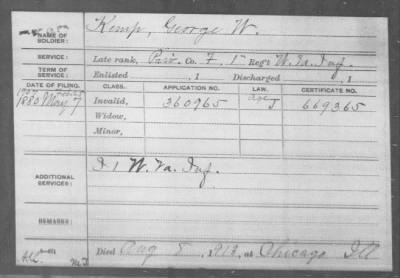 NAME OF SOLDIER: Kemp, George W.
SERVICE: Late rank, Priv. Co. F, 17 Reg't W. Va. Inf.
TERM OF SERVICE: Enlisted , 1 Discharged , 1
DATE OF FILING. CLASS. APPLICATION NO. LAW. CERTIFICATE NO.
1880 May 7 Invalid, 360965 J 669365
Widow,
Minor,
ADDITIONAL SERVICES: I 1 W. Va. Inf.
REMARKS:
Died Aug 8, 1912, at Chicago Ill